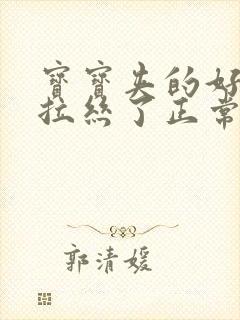 寶寶失的好
拉絲了正常
郭清媛